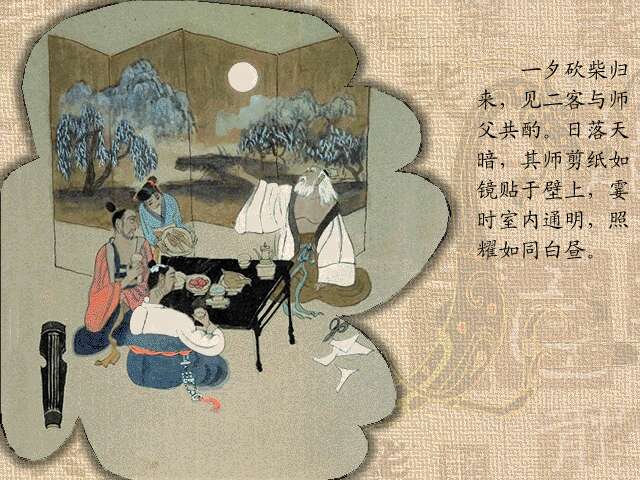 一夕砍柴归
来，见二客与师
父共酌。日落天
暗，其师剪纸如
镜贴于壁上，霎
时室内通明，照
耀如同白昼。